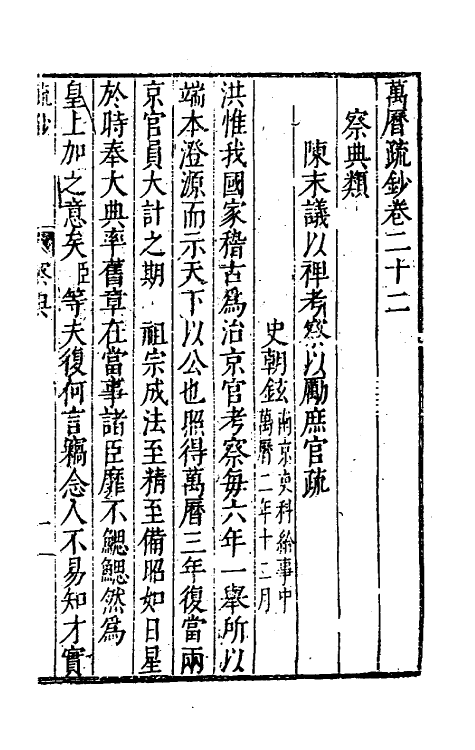 萬曆疏鈔卷二十二
察典類
陳末議以禆考察以勵庶官疏
史朝鉉南京吏科給事中
萬曆二年十二月
洪惟我國家稽古爲治京官考察每六年一舉所以
端本澄源而示天下以公也照得萬曆三年復當兩
京官員大計之期 祖宗成法至精至備昭如日星
於時奉大典率舊章在當事諸臣靡不鰓鰓然爲
皇上加之意矣臣等夫復何言竊念人不易知才實
疏鈔 察典 一